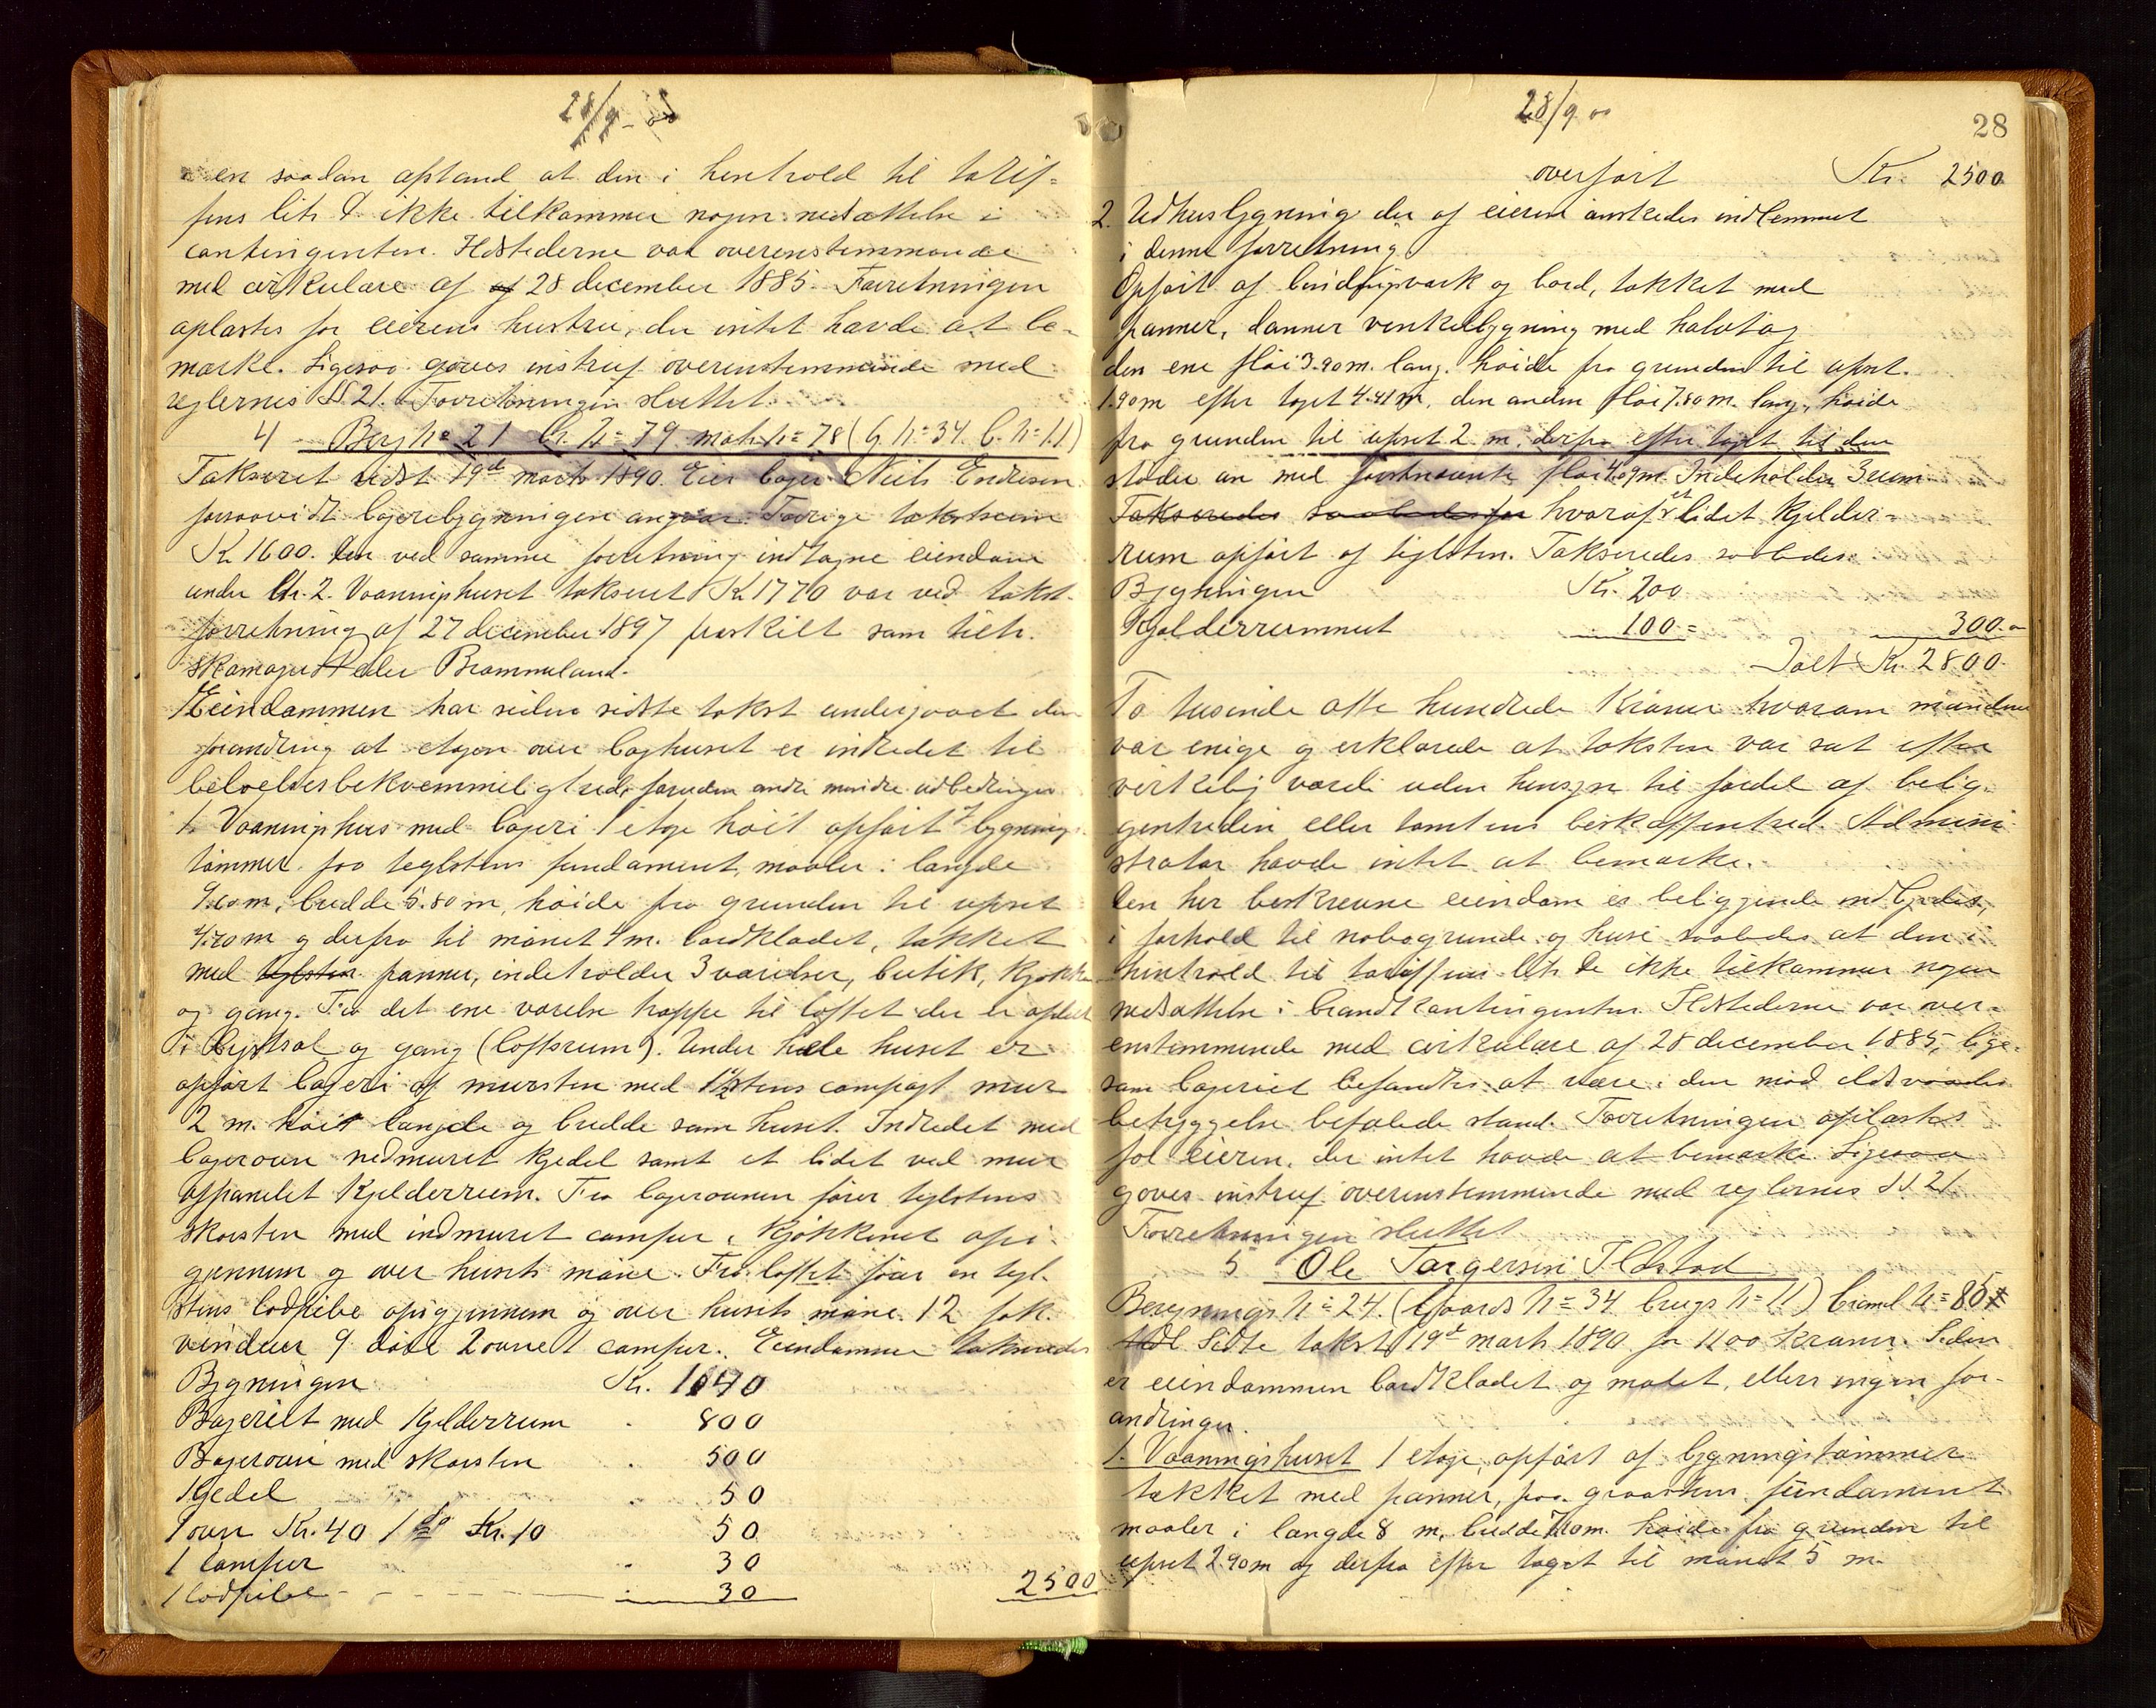 28/9 - 00
en saadan afstand at den i henhold til tarif-
fens litr d ikke tilkommer nogen nedsættelse i
contingenten. Ildstederne var overenstemmende
med cirkulære af 28 december 1885. Forretningen
oplæstes for eierens hustru, der intet havde at be-
mærke. Ligesaa gaves instrux overenstemmende med
reglernes §§ 21. Forretningen sluttet.
4 Berg No 21 br. No 79 matr No 78 (G. No 34 b. No 11)
Takseret sidst 19de marts 1890. Eier bager Niels Endresen
forsaavidt bageribygningen angaar. Forrige takstsum
Kr. 1600. Den ved samme forretning indtagne eiendom
under litr. 2. Vaaningshuset takseret Kr 1770 var ved takst-
forretning af 27 december 1897 fraskilt som tilh.
skomager Peder Brommeland.
Eiendommen har siden sidste takst undergaaet den
forandring at etagen over baghuset er indredet til
beboelsesbekvemmelighed, foruden andre mindre udbedringer
1. Vaaningshus med bageri 1 etage høit opført af bygnings-
tømmer paa teglstens fundament, maaler: længde
9.60 m, bredde 5.80 m, høide fra grunden til upset
4.20 m og derfra til mønet 4 m. bordklædet, tækket
med teglsten panner, indeholder 3 værelser, butik, kjøkken
og gang. Fra det ene værelse trappe til loftet der er afdelt
i Bystsal og gang (loftsrum). Under hele huset er
opført bageri af mursten med 1½ stens compagt mur
2 m. høit længde og bredde som huset. Indredet med
bagerovn nedmuret kjedel samt et lidet ved mur
afpanelet Kjelderrum. Fra bagerovnen fører teglstens
skorsten med indmuret comfur i Kjøkkenet op i-
gjennem og over husets møne. Fra loftet fører en tegl-
stens lodpibe opigjennem og over husets møne. 12 fak.
vinduer 9 døre 2 ovne 1 comfur. Eiendommen takseredes
Bygningen Kr. 1040
Bageriet med Kjelderrum " 800
Bagerovn med skorsten " 500
Kjedel " 50
1 ovn Kr. 40 1 do Kr. 10 50
1 comfur " 30
1 lodpibe " 30 2500
28/9 00
28
overført Kr. 2500
2. Udhusbygning der af eieren ønskedes indlemmet
i denne forretning
Opført af bindingsværk og bord, tækket med
panner, danner vinkelbygning med halvtag
den ene fløi 3.90 m. lang. høide fra grunden til upset.
1.90 m efter taget 4.41 m, den anden fløi 7.80 m. lang, høide
fra grunden til upset 2 m. derfra efter taget til den
støder an med førstnævnte fløi 4.09 m. Indeholder 3 rum
Takseredes saaledes for hvoraf et lidet Kjelder-
rum opført af teglsten. Takseredes saaledes:
Bygningen Kr. 200
Kjelderrummet 100 = 300
Ialt Kr. 2800
To tusinde otte hundrede Kroner hvorom mændene
var enige og erklærede at taksten var sat efter
virkelig værdi uden hensyn til fordel af belig-
genheden eller tomtens beskaffenhed. Admini-
strator havde intet at bemærke.
Den her beskrevne eiendom er beliggende indbyrdes,
i forhold til nabogrunde og huse saaledes at den i
henhold til tariffens litr. de ikke tilkommer nogen
nedsættelse i brandkontingenten. Ildstederne var over-
enstemmende med cirkulære af 28 december 1885, lige-
som bageriet befandtes at være i den mod ildsvaades
betryggelse befalede stand. Forretningen oplæstes
for eieren, der intet havde at bemærke. Ligesaa
gaves instrux overenstemmende med reglernes §§ 21
Forretningen sluttet
5 Ole Torgersen Ildstad
Beregnings No 24. (Gaards No 34 brugs No 11) brand No 85
Sidste takst 19de marts 1890 for 1100 kroner. Siden
er eiendommen bordklædet og malet, ellers ingen for-
andringer.
1. Vaaningshuset 1 etage, opført af bygningstømmer
tækket med panner, paa graastens fundament
maaler i længde 8 m, bredde 7.10 m. høide fra grunden til
upset 2.90 m og derfra efter taget til mønet 5 m.